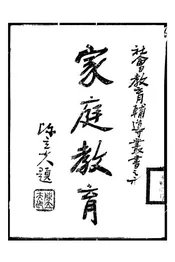 社會教育輔導叢書之六
家庭教育
陳立夫題